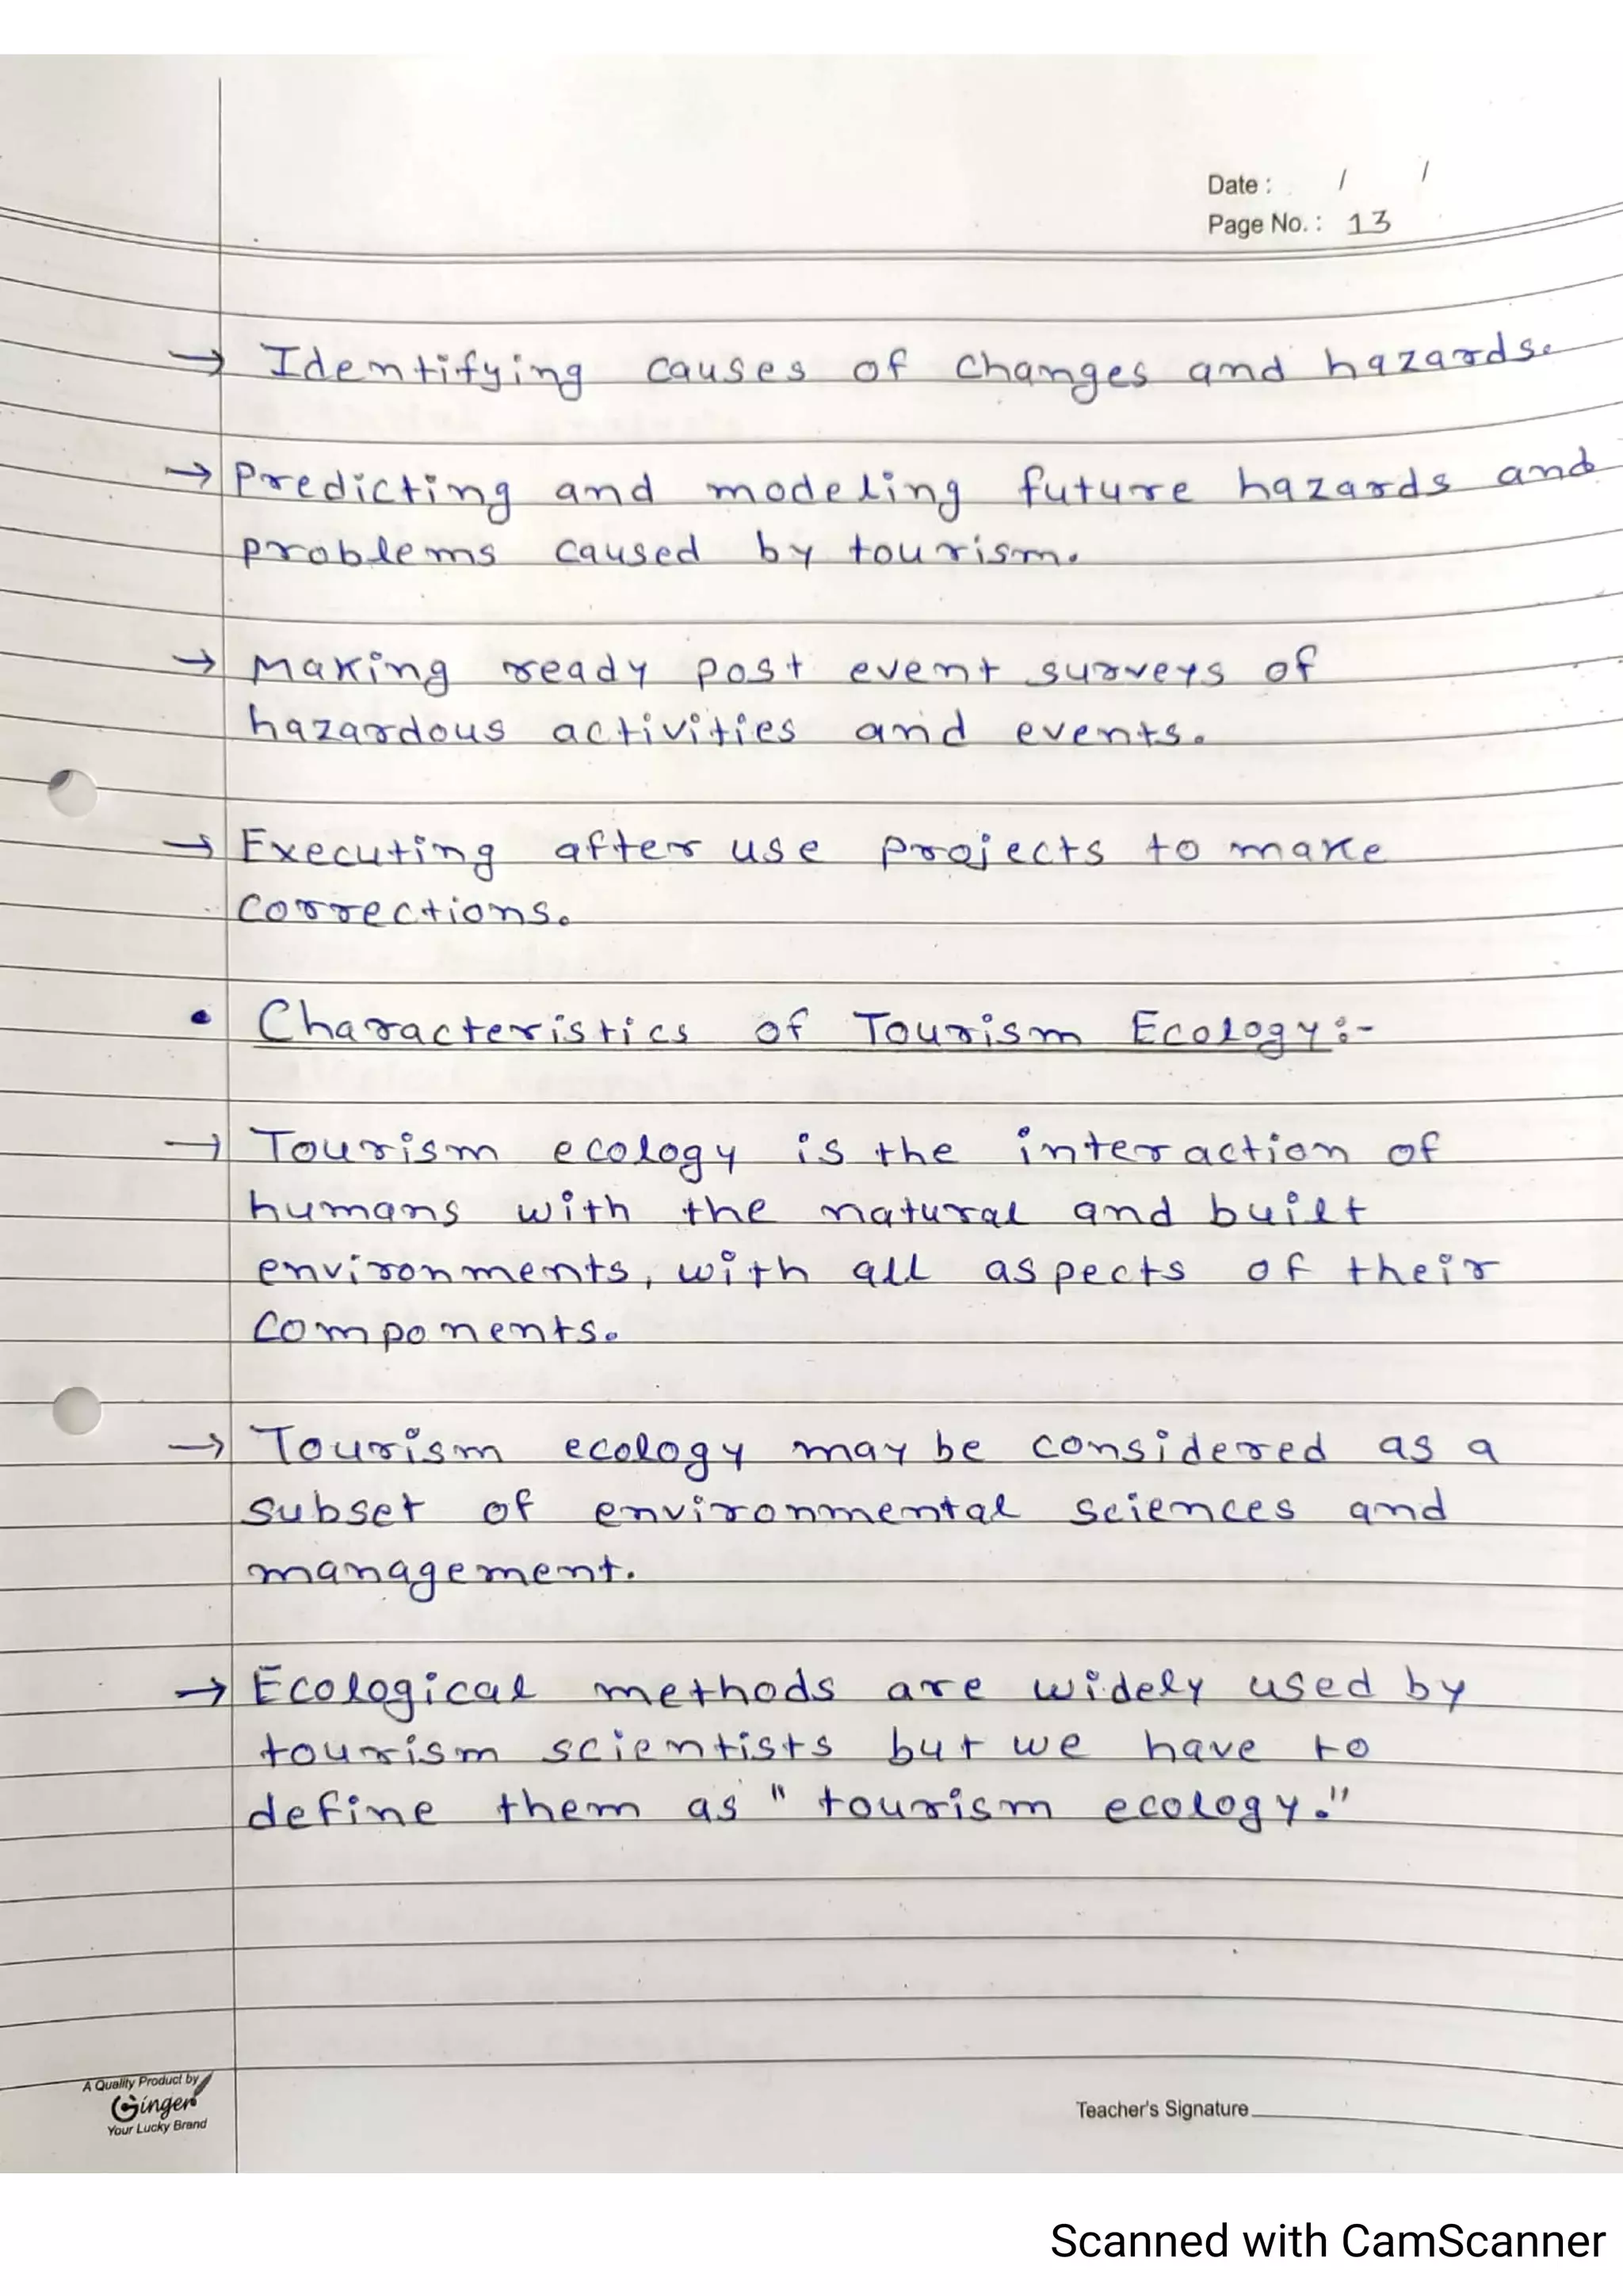 Date : / /
Page No. : 13
→ Identifying causes of changes and hazards.
→ Predicting and modeling future hazards and
problems caused by tourism.
→ Making ready post event surveys of
hazardous activities and events.
→ Executing after use projects to make
corrections.
• Characteristics of Tourism Ecology:-
→ Tourism ecology is the interaction of
humans with the natural and built
environments, with all aspects of their
components.
→ Tourism ecology may be considered as a
subset of environmental sciences and
management.
→ Ecological methods are widely used by
tourism scientists but we have to
define them as "tourism ecology."
A Quality Product by
Ginger
Your Lucky Brand
Teacher's Signature
Scanned with CamScanner